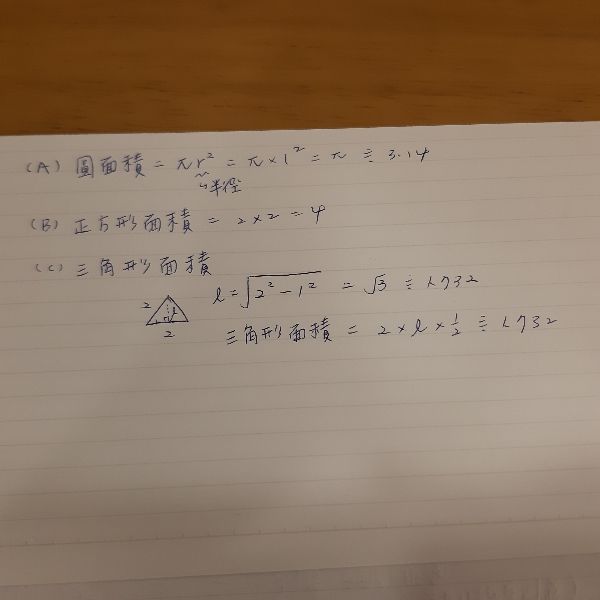 (A) 圓面積 = πr² = π×1² = π ≒ 3.14
半徑
(B) 正方形面積 = 2×2 = 4
(C) 三角形面積
l = √(2²-1²) = √3 ≒ 1.732
2
l
2
三角形面積 = 2×l×1/2 ≒ 1.732